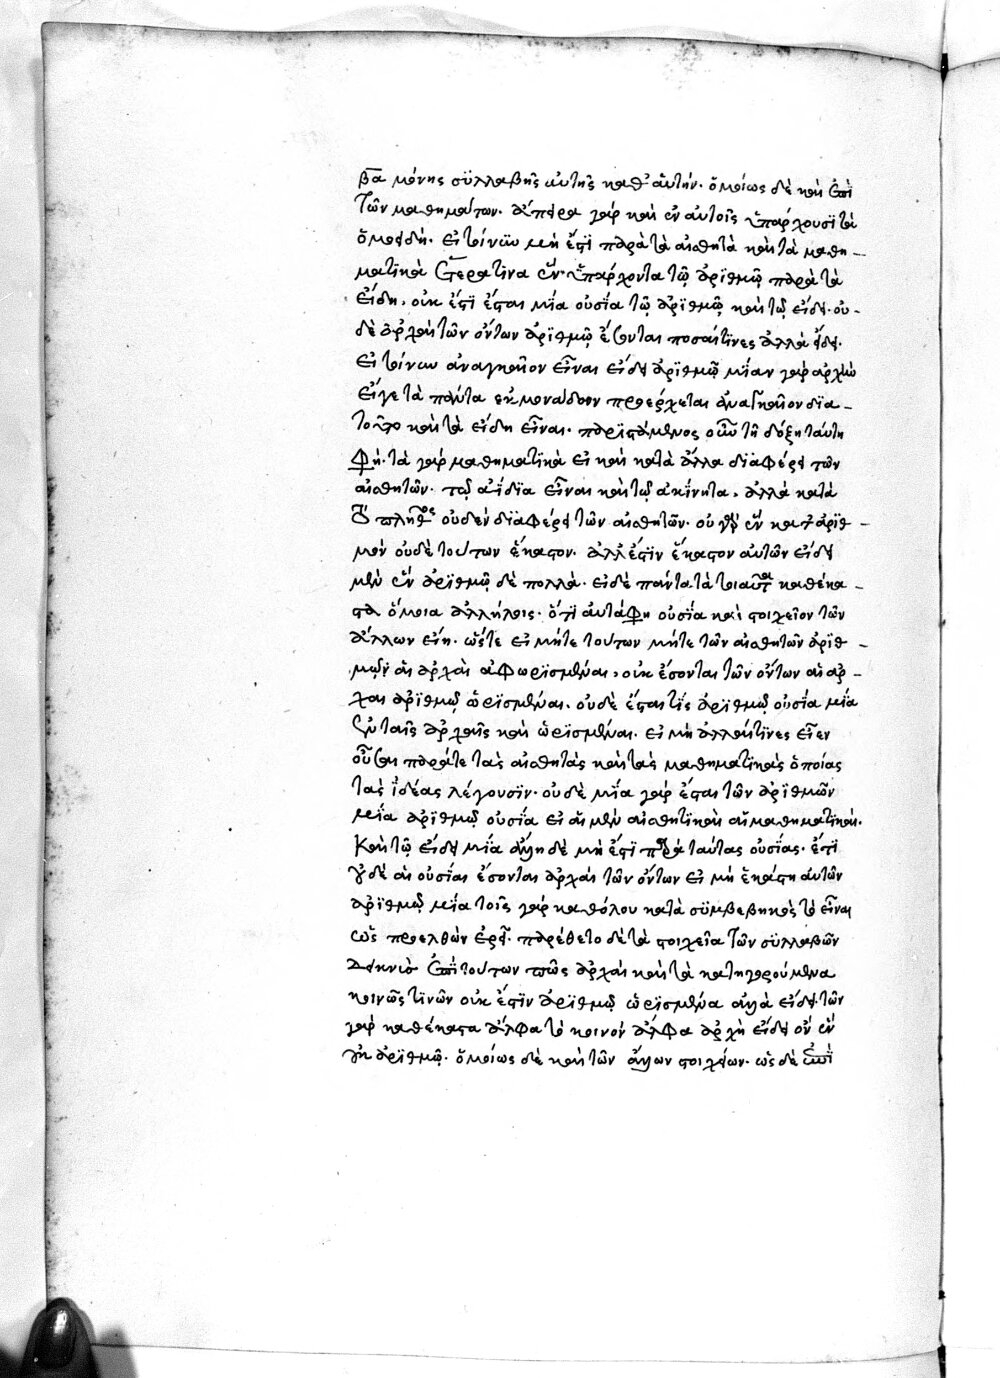 βα μόνης συλλαβῆς αὐτῆς καθ' αὑτήν. ὁμοίως δὲ καὶ ἐπὶ
τῶν μαθημάτων. ἄπειρα γὰρ καὶ ἐν αὐτοῖς ὑπάρχουσι τὰ
ὁμοειδῆ. εἰ τοίνυν μὴ ἔστι παρὰ τὰ αἰσθητὰ καὶ τὰ μαθη-
ματικὰ ἕτερα τινα ἓν ὑπάρχοντα τῷ ἀριθμῷ παρὰ τὰ
εἴδη, οὐκ ἔστι ἔσται μία οὐσία τῷ ἀριθμῷ καὶ τῷ εἴδει. οὐ-
δὲ ἀρχαὶ τῶν ὄντων ἀριθμῷ ἔσονται ποσαί τινες ἀλλὰ εἴδει.
εἰ τοίνυν ἀναγκαῖον εἶναι εἴδει ἀριθμῷ μίαν γὰρ ἀρχὴν
εἴγε τὰ πάντα ἐκ μονάδων προέρχεται ἀναγκαῖον διὰ
τοῦτο καὶ τὰ εἴδη εἶναι. παριστάμενος οὖν τῇ δόξῃ ταύτῃ
φη. τὰ γὰρ μαθηματικὰ εἰ καὶ κατὰ ἄλλα διαφέρει τῶν
αἰσθητῶν. τῷ ἀΐδια εἶναι καὶ τῷ ἀκίνητα, ἀλλὰ κατὰ
τὸ πλῆθος οὐδὲν διαφέρει τῶν αἰσθητῶν. οὐ γὰρ ἓν κατ' ἀριθ-
μὸν οὐδὲ τούτων ἕκαστον. ἀλλ' ἔστιν ἕκαστον αὐτῶν εἴδει
μὲν ἓν ἀριθμῷ δὲ πολλά. εἰ δὲ πάντα τὰ τοιαῦτα καθέκα-
στα ὅμοια ἀλλήλοις. ὅτι αὐτά φη οὐσία καὶ στοιχεῖον τῶν
ἄλλων εἴη. ὥστε εἰ μήτε τούτων μήτε τῶν αἰσθητῶν ἀριθ-
μῷ αἱ ἀρχαὶ ἀφωρισμέναι, οὐκ ἔσονται τῶν ὄντων αἱ ἀρ-
χαὶ ἀριθμῷ ὡρισμέναι. οὐδὲ ἔσται τίς ἀριθμῷ οὐσία μία
ἐν ταῖς ἀρχαῖς καὶ ὡρισμέναι. εἰ μὴ ἄλλαι τινες εἶεν
οὖσαι παρά τε τὰς αἰσθητὰς καὶ τὰς μαθηματικὰς ὁποίας
τὰς ἰδέας λέγουσιν. οὐδὲ μία γὰρ ἔσται τῶν ἀριθμῶν
μία ἀριθμῷ οὐσία εἰ αἱ μὲν αἰσθητικαὶ αἱ μαθηματικαί.
Καὶ τῷ εἴδει μία ἄλλη δὲ μὴ ἔστι παρὰ ταύτας οὐσίας. ἔτι
γ' δὲ αἱ οὐσίαι ἔσονται ἀρχαὶ τῶν ὄντων εἰ μὴ ἑκάστη αὐτῶν
ἀριθμῷ μία τοῖς γὰρ καθόλου κατὰ συμβεβηκὸς τὸ εἶναι
ὡς προελθὼν ἐρεῖ. παρέθετο δὲ τὰ στοιχεῖα τῶν συλλαβῶν
δεικνὺς ἐπὶ τούτων πῶς ἀρχαὶ καὶ τὰ κατηγορούμενα
κοινῶς τινῶν οὐκ ἔστιν ἀριθμῷ ὡρισμένα ἀλλὰ εἴδει. τῶν
γὰρ καθέκαστα ἄλφα τὸ κοινὸν ἄλφα ἀρχὴ εἴδει ὂν ἓν
οὐκ ἀριθμῷ. ὁμοίως δὲ καὶ τῶν ἄλλων στοιχείων. ὡς δὲ ἐπὶ